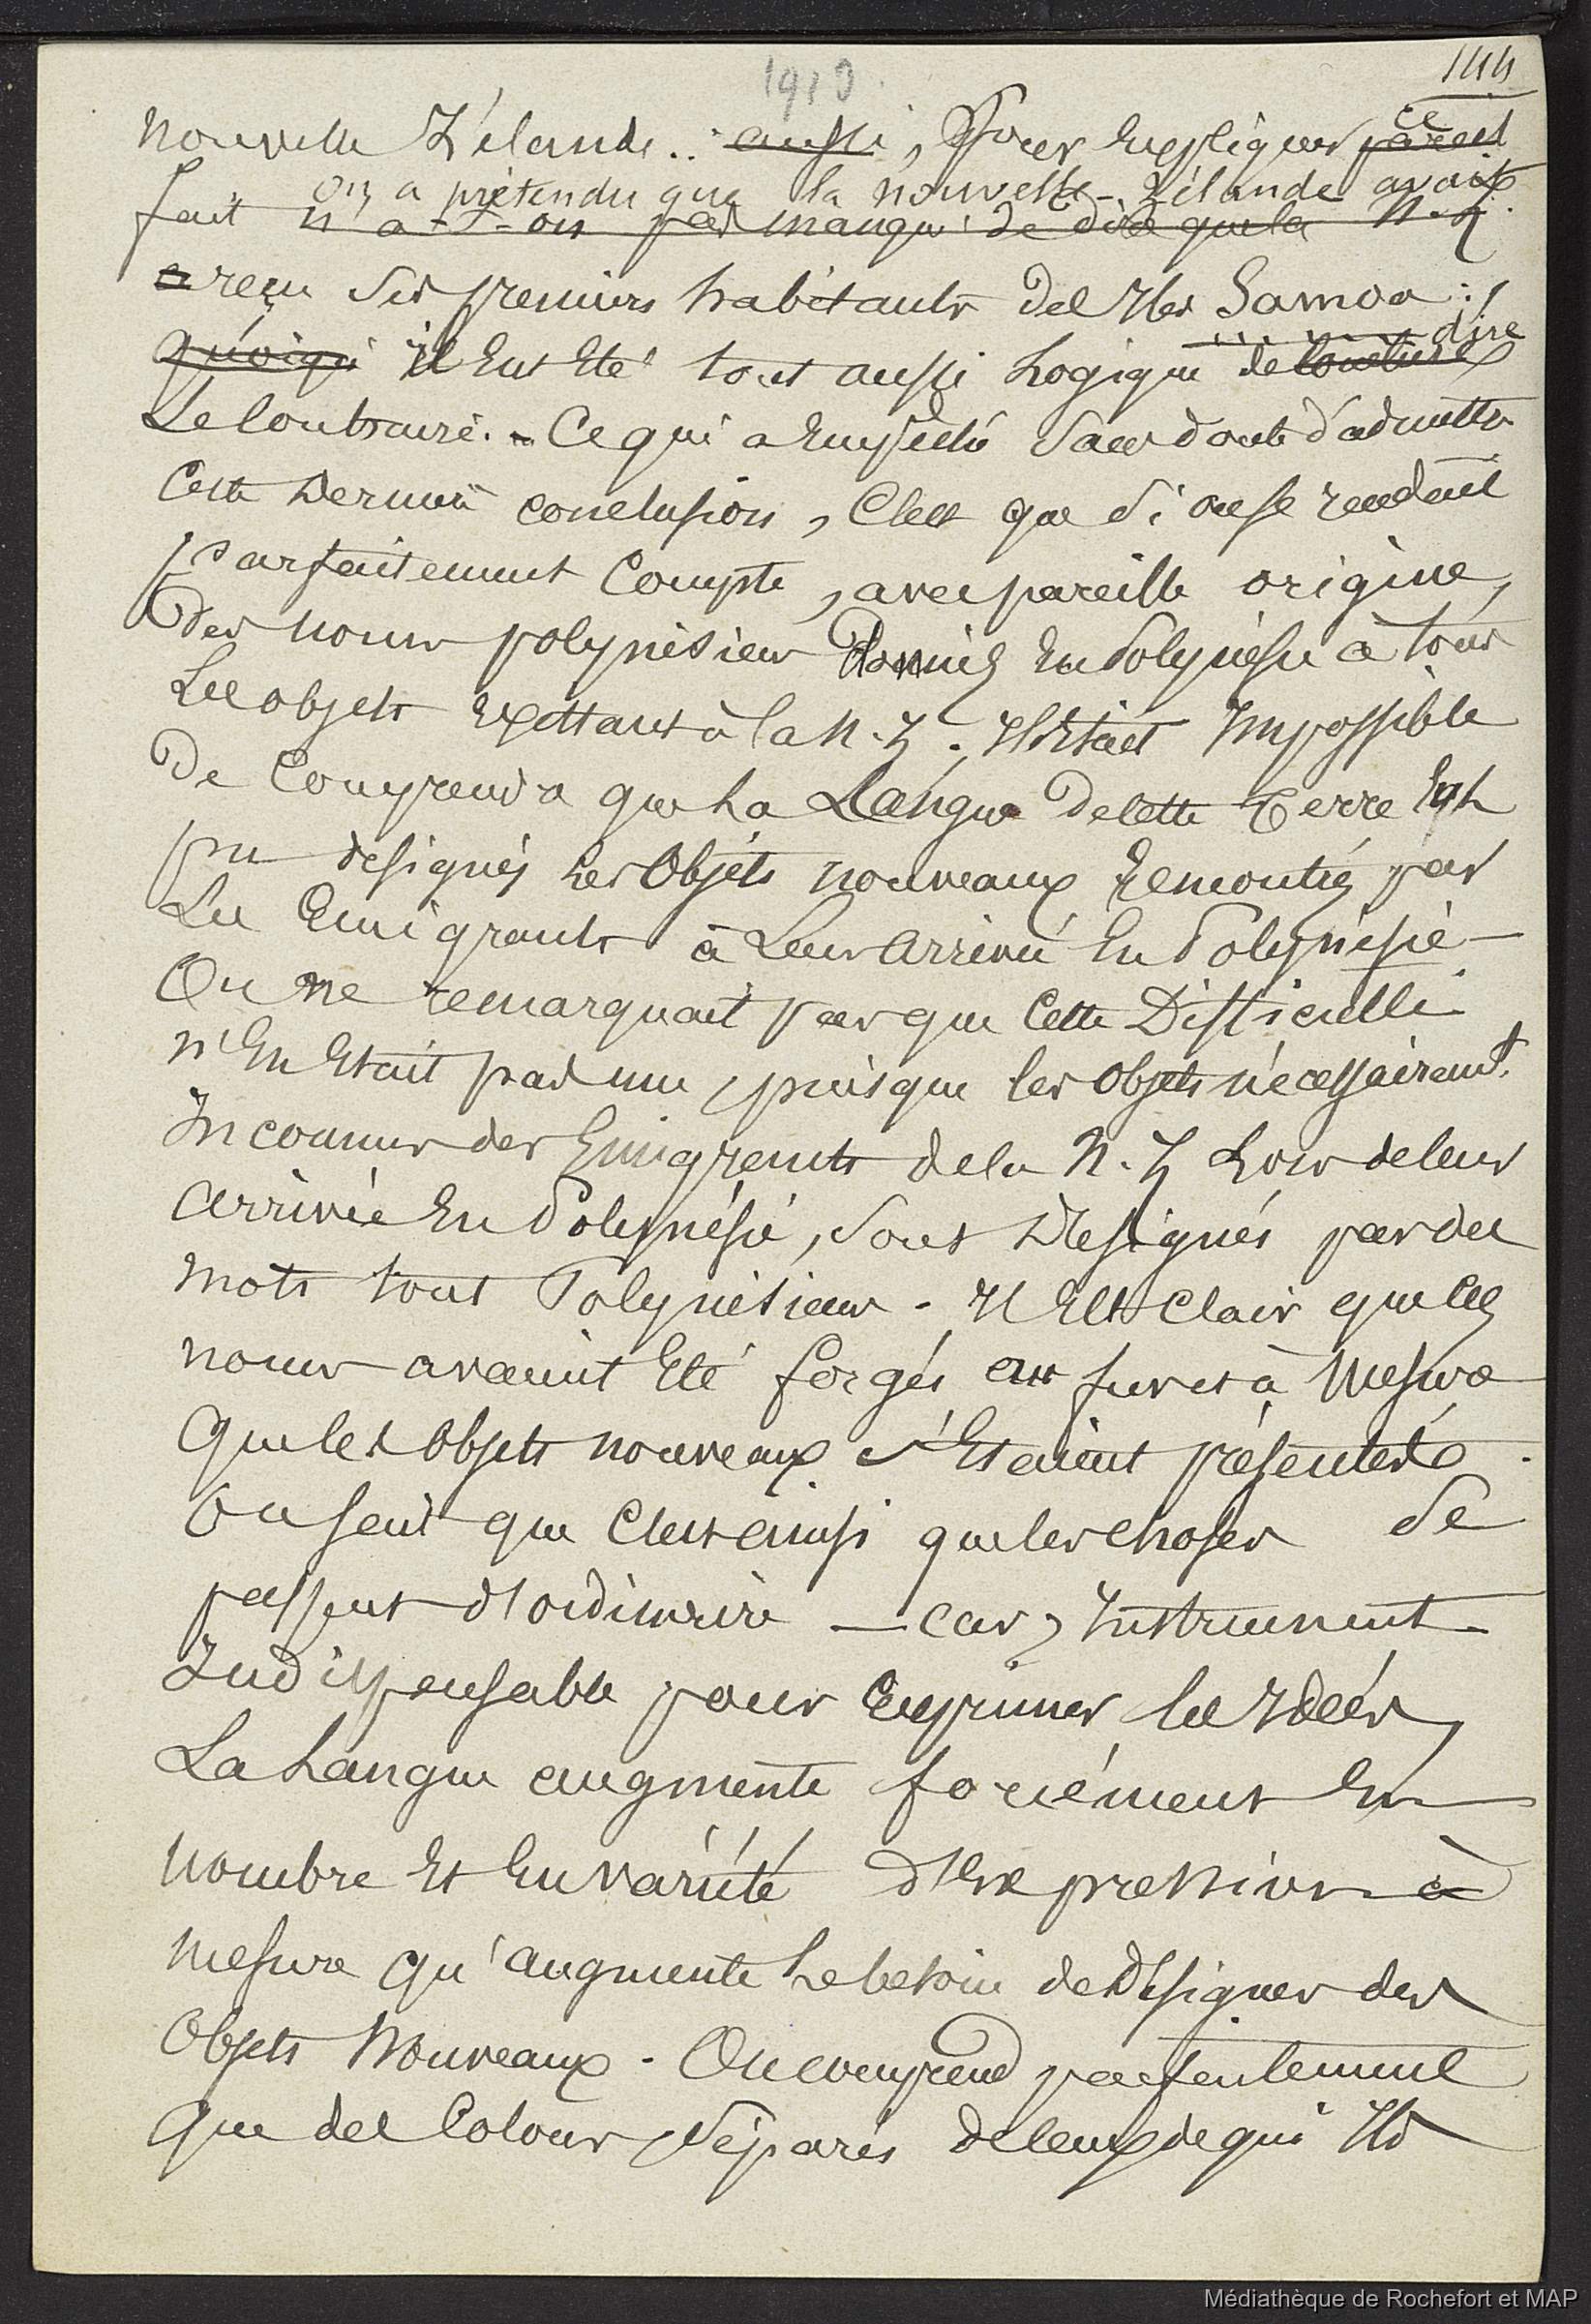 1910
144
Nouvelle Zélande. : aussi, Pour Expliquer pareil ce
on a prétendu que la nouvelle-Zélande avait
fait n'a-t-on pas manqué de dire que la N. Z
a reçu ses premiers habitants des Iles Samoa : /
quoiqu' il Eut Eté tout aussi Logique de conclure dire
Le Contraire. - Ce qui a Empêché sans doute d'admettre
Cette Dernière conclusion, C'est que si on se rendait
parfaitement Compte, avec pareille origine,
Des noms polynésiens Donnés En Polynésie à tous
Les objets Existants à la N. Z. Il Etait Impossible
De Comprendre que La Langue De cette Terre Eut
pu designés Les Objets nouveaux Remontrés par
Les Emigrants à Leur Arrivée En Polynésie -
On ne remarquait pas que Cette Difficulté
n'En Etait pas une, puisque les Objets nécessairemt.
Inconnus des Emigrants de la N. Z Lors de leur
arrivée En Polynésie, Sont Désignés par des
mots tout Polynésiens - Il Est clair que Ces
noms avaient Eté forgés au fur et à Mesure
Que les Objets nouveaux s'Etaient présentés.
On sait que C'est ainsi que les choses Se
passent d'ordinaire - car, Instrument
Indispensable pour Exprimer les Idées,
La Langue augmente forcément En
Nombre Et En variété d'Expression à
Mesure qu'augmente Le besoin de Désigner des
Objets Nouveaux - On comprend parfaitement
Que des Colons, Séparés de ceux de qui Ils
Médiathèque de Rochefort et MAP